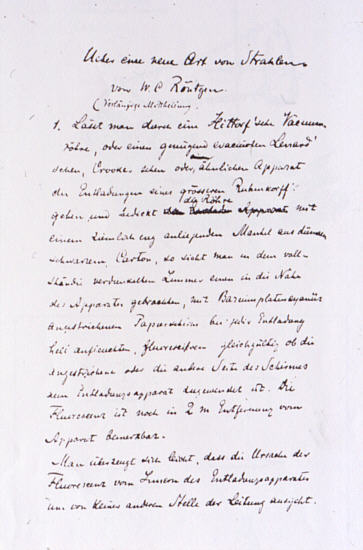 Ueber eine neue Art von Strahlen.
von W. C. Röntgen.
(Vorläufige Mittheilung.)
1. Lässt man durch eine Hittorf'sche Vacuum-
röhre, oder einen genügend evacuirten Lenard'
schen, Crookes'schen oder ähnlichen Apparat
die Entladungen eines grösseren Ruhmkorff's
gehen und bedeckt die Röhre Apparat mit
einem ziemlich eng anliegenden Mantel aus dünnem
schwarzem Carton, so sieht man in dem voll-
ständig verdunkelten Zimmer einen in die Nähe
des Apparates gebrachten, mit Bariumplatincyanür
angestrichenen Papierschirm bei jeder Entladung
hell aufleuchten, fluoresciren gleichgültig ob die
angestrichene oder die andere Seite des Schirmes
dem Entladungsapparat zugewendet ist. Die
Fluorescenz ist noch in 2 m Entfernung vom
Apparat bemerkbar.
Man überzeugt sich leicht, dass die Ursache der
Fluorescenz vom Innern des Entladungsapparates
und von keiner anderen Stelle der Leitung ausgeht.